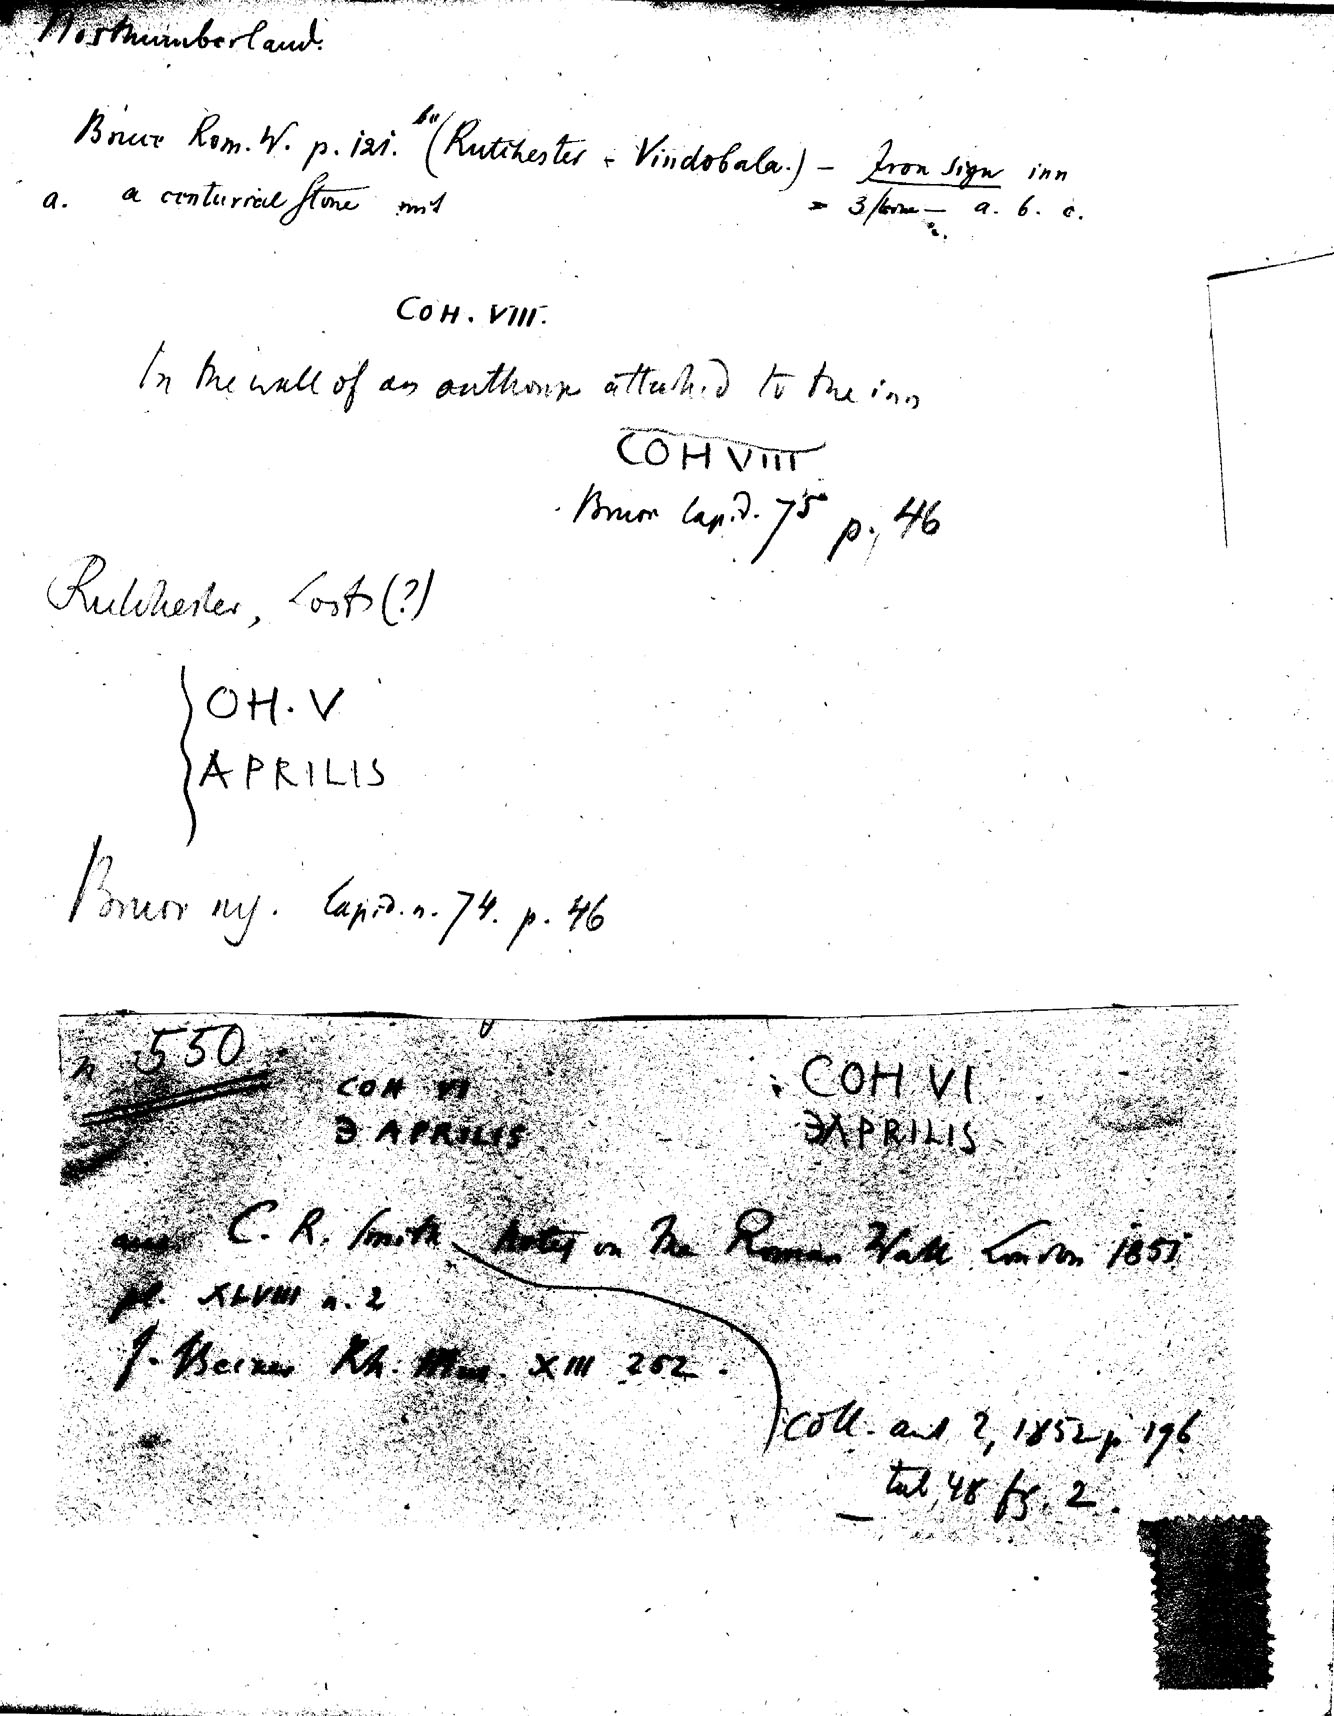 Northumberland.
Bruce Rom. W. p. 121. (Rutchester = Vindobala.) – Iron sign inn
= 3 – a. b. c.
a. a centurial stone mit
COH. VIII.
In the wall of an outhouse attached to the inn
COH VIII
Bruce lapid. 75 p. 46
Rutchester, Lost (?)
OH. V
APRILIS
Bruce lapid. n. 74. p. 46
n 550
COH VI
Ͽ APRILIS
COH VI
ϿAPRILIS
C. R. Smith notes on the Roman Wall London 1851
pl. XLVIII n. 2
J. Becker Rh. Mus. XIII 262.
Coll. ant 2, 1852 p 196
tab. 48 fg. 2.